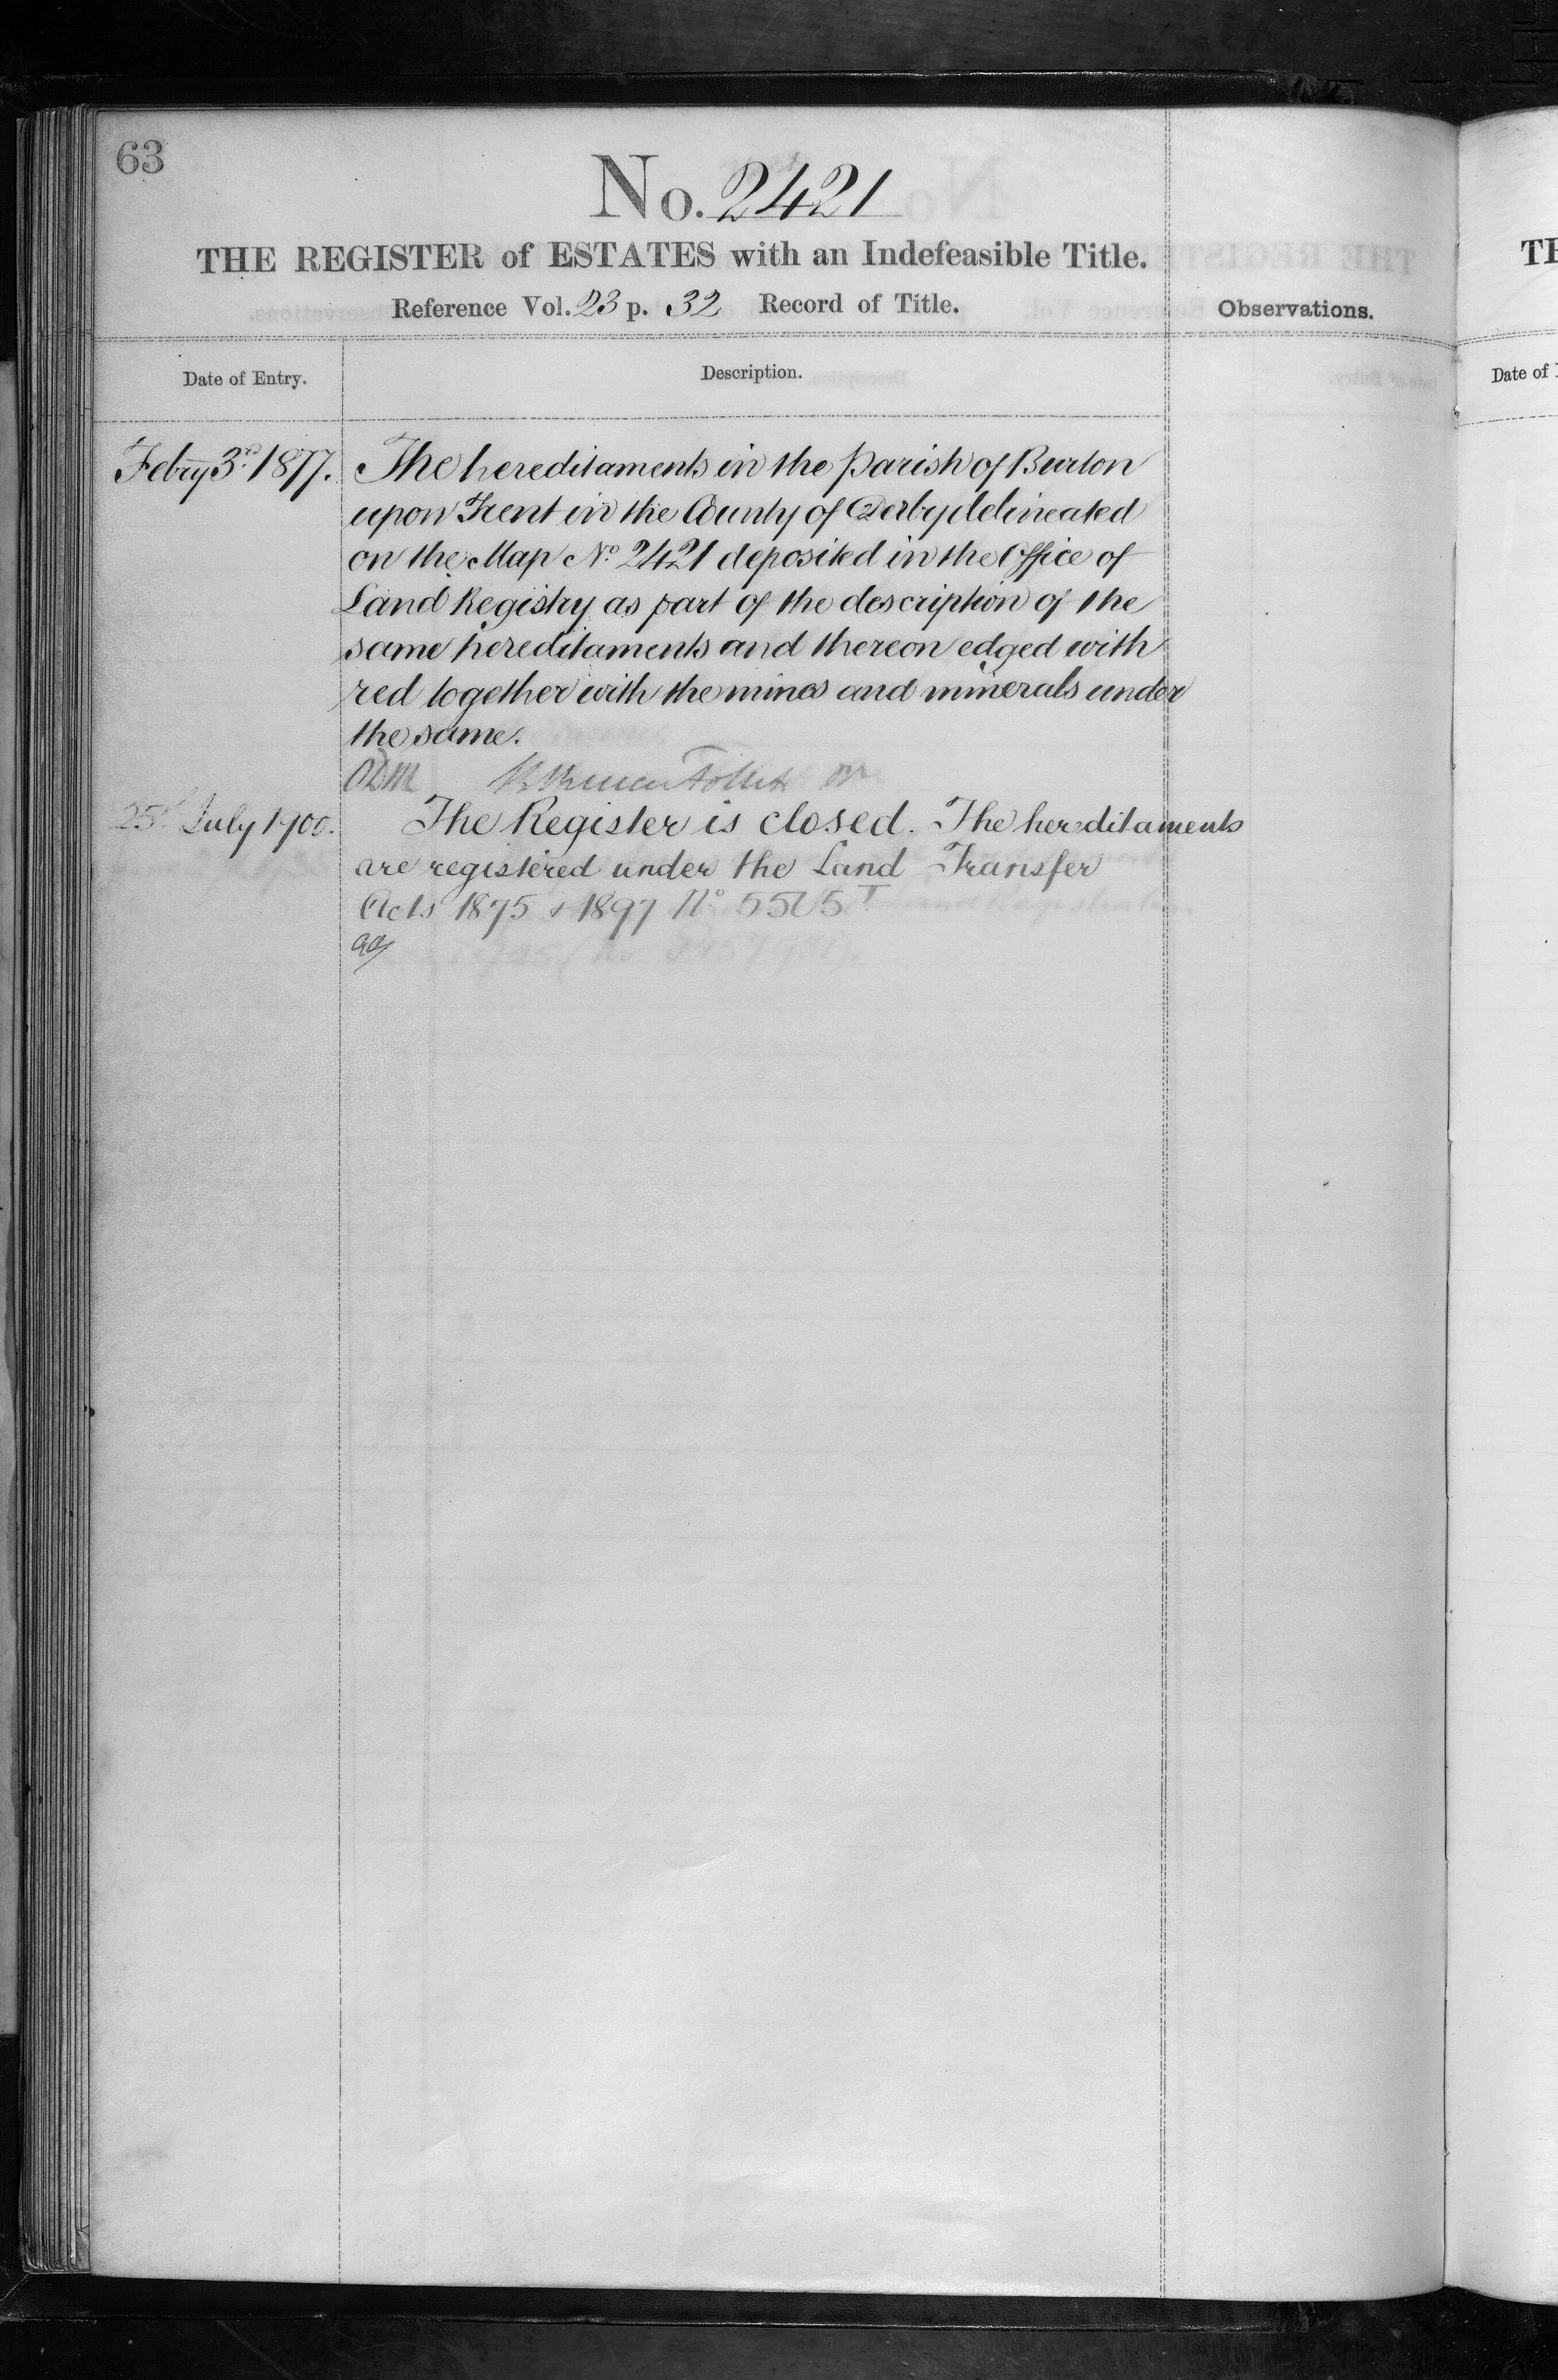 63
No. 2421
THE REGISTER of ESTATES with an Indefeasible Title.
Reference Vol. 23 p. 32 Record of Title.
Observations.
Date of Entry.
Description.
Febry 3rd 1877.
The hereditaments in the Parish of Burton
upon Trent in the County of Derby delineated
on the Map No 2421 deposited in the Office of
Land Registry as part of the description of the
same hereditaments and thereon edged with
red together with the mines and minerals under
the same.
25th July 1900.
The Register is closed. The hereditaments
are registered under the Land Transfer
Acts 1875 & 1897 No
TH
Date of